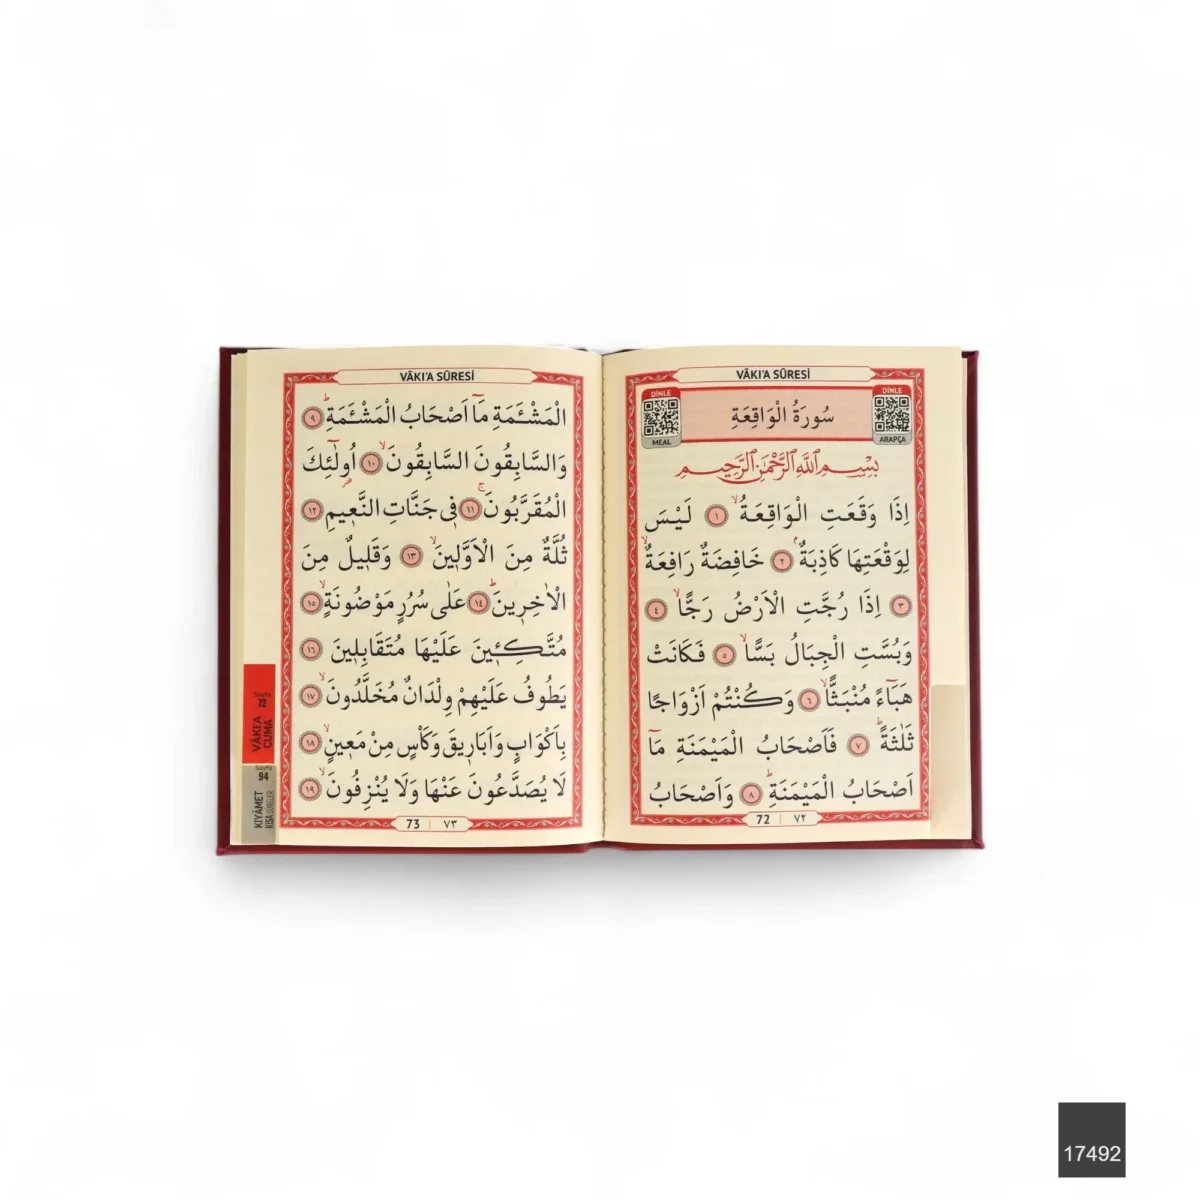 VÂKI'A SÛRESİ
DİNLE
MEAL
سُورَةُ الْوَاقِعَةِ
DİNLE
ARAPÇA
بِسْمِ اللّٰهِ الرَّحْمٰنِ الرَّحِيمِ
اِذَا وَقَعَتِ الْوَاقِعَةُۙ ﴿١﴾ لَيْسَ
لِوَقْعَتِهَا كَاذِبَةٌۢ ﴿٢﴾ خَافِضَةٌ رَافِعَةٌۙ
﴿٣﴾ اِذَا رُجَّتِ الْاَرْضُ رَجًّاۙ ﴿٤﴾
وَبُسَّتِ الْجِبَالُ بَسًّاۙ ﴿٥﴾ فَكَانَتْ
هَبَٓاءً مُنْبَثًّاۙ ﴿٦﴾ وَكُنْتُمْ اَزْوَاجًا
ثَلٰثَةًؕ ﴿٧﴾ فَاَصْحَابُ الْمَيْمَنَةِ مَٓا
اَصْحَابُ الْمَيْمَنَةِؕ ﴿٨﴾ وَاَصْحَابُ
72 | ٧٢
VÂKI'A SÛRESİ
الْمَشْـَٔمَةِ مَٓا اَصْحَابُ الْمَشْـَٔمَةِؕ ﴿٩﴾
وَالسَّابِقُونَ السَّابِقُونَۙ ﴿١٠﴾ اُولٰٓئِكَ
الْمُقَرَّبُونَۚ ﴿١١﴾ فٖي جَنَّاتِ النَّعٖيمِ ﴿١٢﴾
ثُلَّةٌ مِنَ الْاَوَّلٖينَۙ ﴿١٣﴾ وَقَلٖيلٌ مِنَ
الْاٰخِرٖينَؕ ﴿١٤﴾ عَلٰى سُرُرٍ مَوْضُونَةٍۙ ﴿١٥﴾
مُتَّكِـٖٔينَ عَلَيْهَا مُتَقَابِلٖينَ ﴿١٦﴾
يَطُوفُ عَلَيْهِمْ وِلْدَانٌ مُخَلَّدُونَۙ ﴿١٧﴾
بِاَكْوَابٍ وَاَبَارٖيقَ وَكَأْسٍ مِنْ مَعٖينٍۙ ﴿١٨﴾
لَا يُصَدَّعُونَ عَنْهَا وَلَا يُنْزِفُونَۙ ﴿١٩﴾
73 | ٧٣
Sayfa
72
VÂKI'A
CUMA
Sayfa
94
KIYÂMET
KISA SURELER
17492